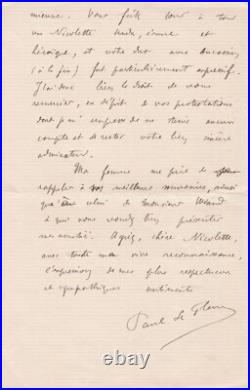 mienne. Vous fûtes tour à tour
un Nicolette tendre, émue et
héroïque, et votre duo avec Aucassin
(à la fin) fut particulièrement expressif.
J'ai donc bien le droit de vous
remercier, en dépit de vos protestations
dont je m'empresse de ne tenir aucun
compte et de rester votre bien sincère
admirateur.
Ma femme me prie de
rappeler à vos meilleurs souvenirs, ainsi
qu'à celui de Monsieur
à qui nous voudrez bien présenter
mes amitiés. Agréez, chère Nicolette,
avec toute ma vive reconnaissance,
l'expression de mes plus respectueux
et sympathiques sentiments
Paul Le Flem